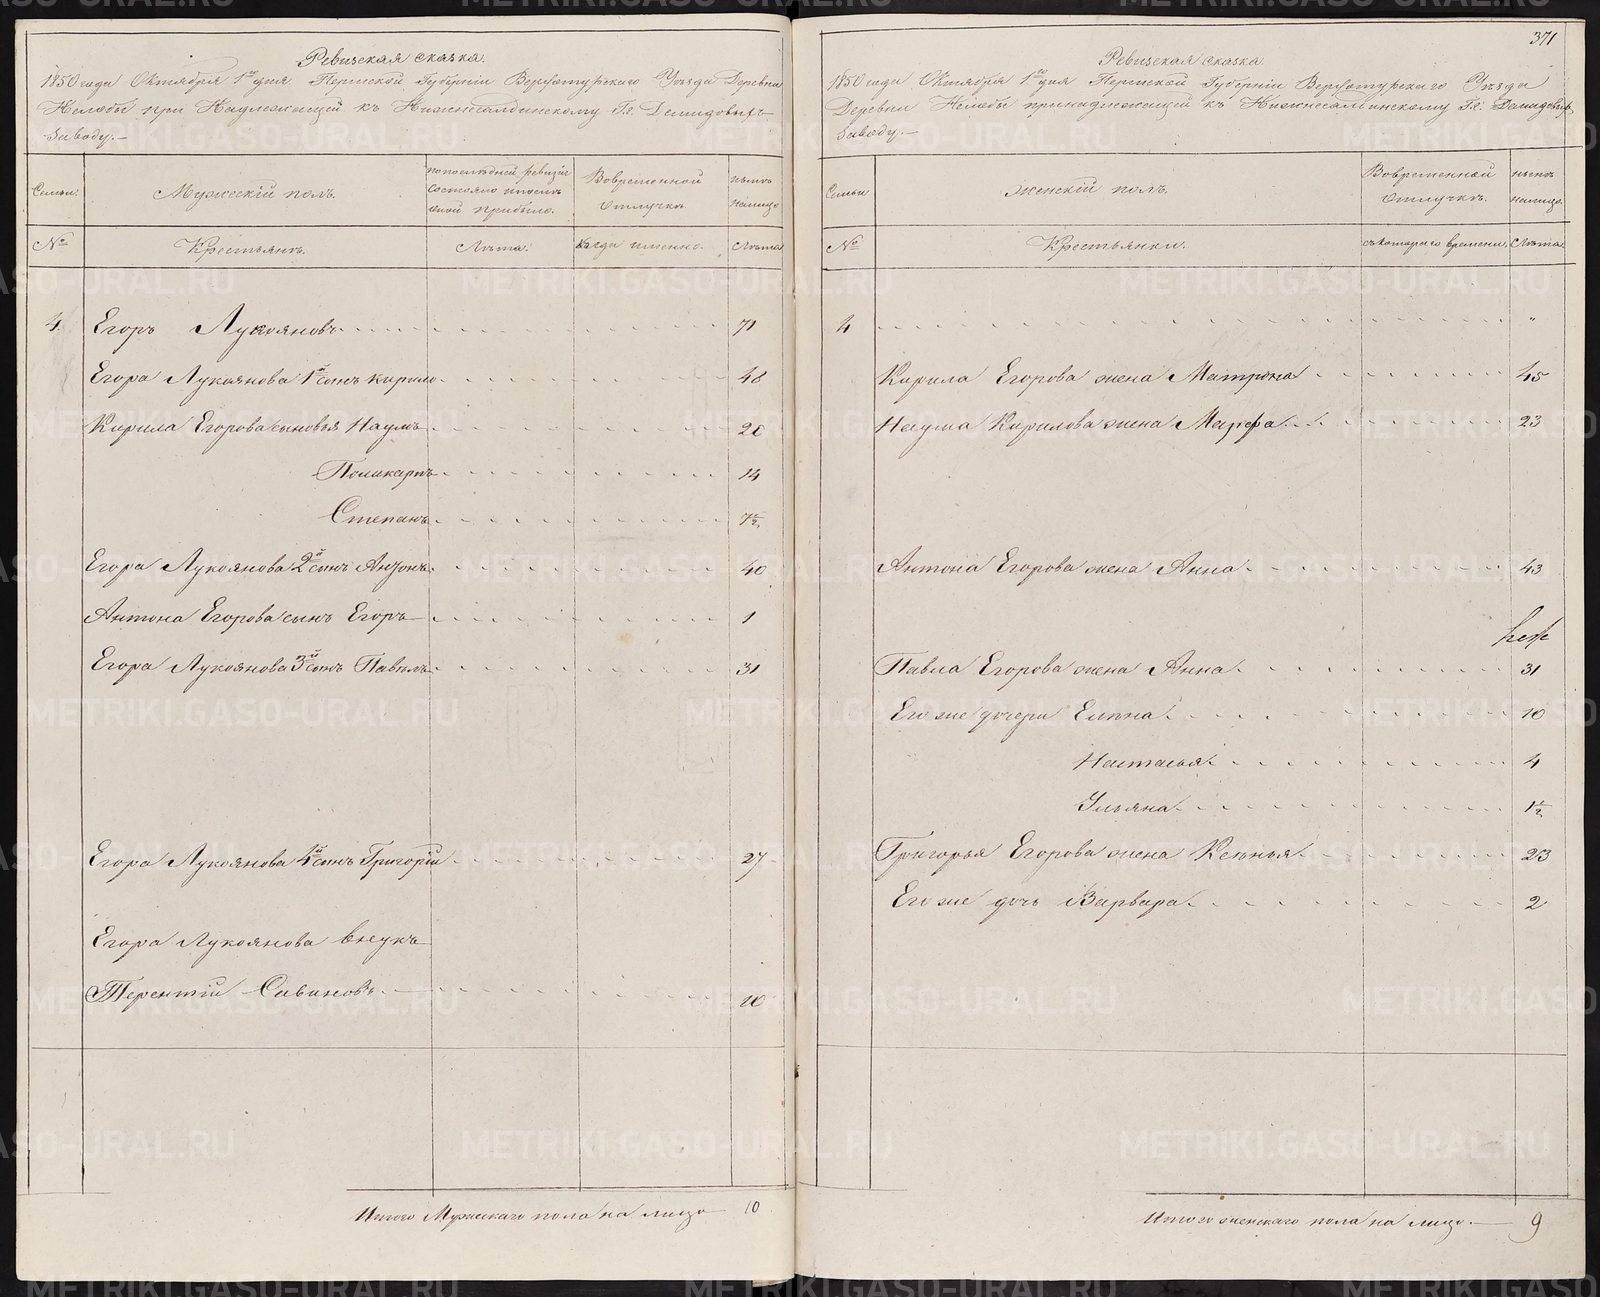 Ревизская сказка.
1850 года Октября 1го дня Пермской Губернiи Верхотурскаго Уѣзда Деревни
Нелобы при Надлежащей къ Нижнесалдинскому Гг. Демидовыхъ
Заводу.—
Семьи.
Мужескiй полъ.
по последней ревизiи
состояло и после
оной прибыло.
Вовременной
Отлучкѣ
нынѣ
налицо
№
Крестьянъ.
Лѣта.
когда именно.
Лѣта
4. Егоръ Лукояновъ 71
Егора Лукоянова 1й сынъ Кирило 48
Кирила Егорова сыновья Наумъ 20
Поликарпъ 14
Степанъ 7½
Егора Лукоянова 2й сынъ Антонъ 40
Антона Егорова сынъ Егоръ 1
Егора Лукоянова 3й сынъ Павелъ 31
Егора Лукоянова 4й сынъ Григорiй 27
Егора Лукоянова внукъ
Терентiй Савиновъ 10
Итого Мужескаго пола на лицо 10
371
Ревизская сказка
1850 года Октября 1го дня Пермской Губернiи Верхотурскаго Уѣзда
Деревни Нелобы принадлежащей къ Нижнесалдинскому Гг. Демидовыхъ
Заводу.—
Семьи
Женскiй полъ.
Вовременной
Отлучкѣ.
нынѣ
налицо.
№
Крестьянки.
съкотораго времени.
Лѣта
4 "
Кирила Егорова жена Матрона 45
Наума Кирилова жена Марфа 23
Антона Егорова жена Анна 43
Павла Егорова жена Анна 31
Его же дочери Елена 10
Настасья 4
Ульяна 1½
Григорья Егорова жена Ксенья 23
Его же дочь Варвара 2
Итого женскаго пола на лицо.— 9
METRIKI.GASO-URAL.RU